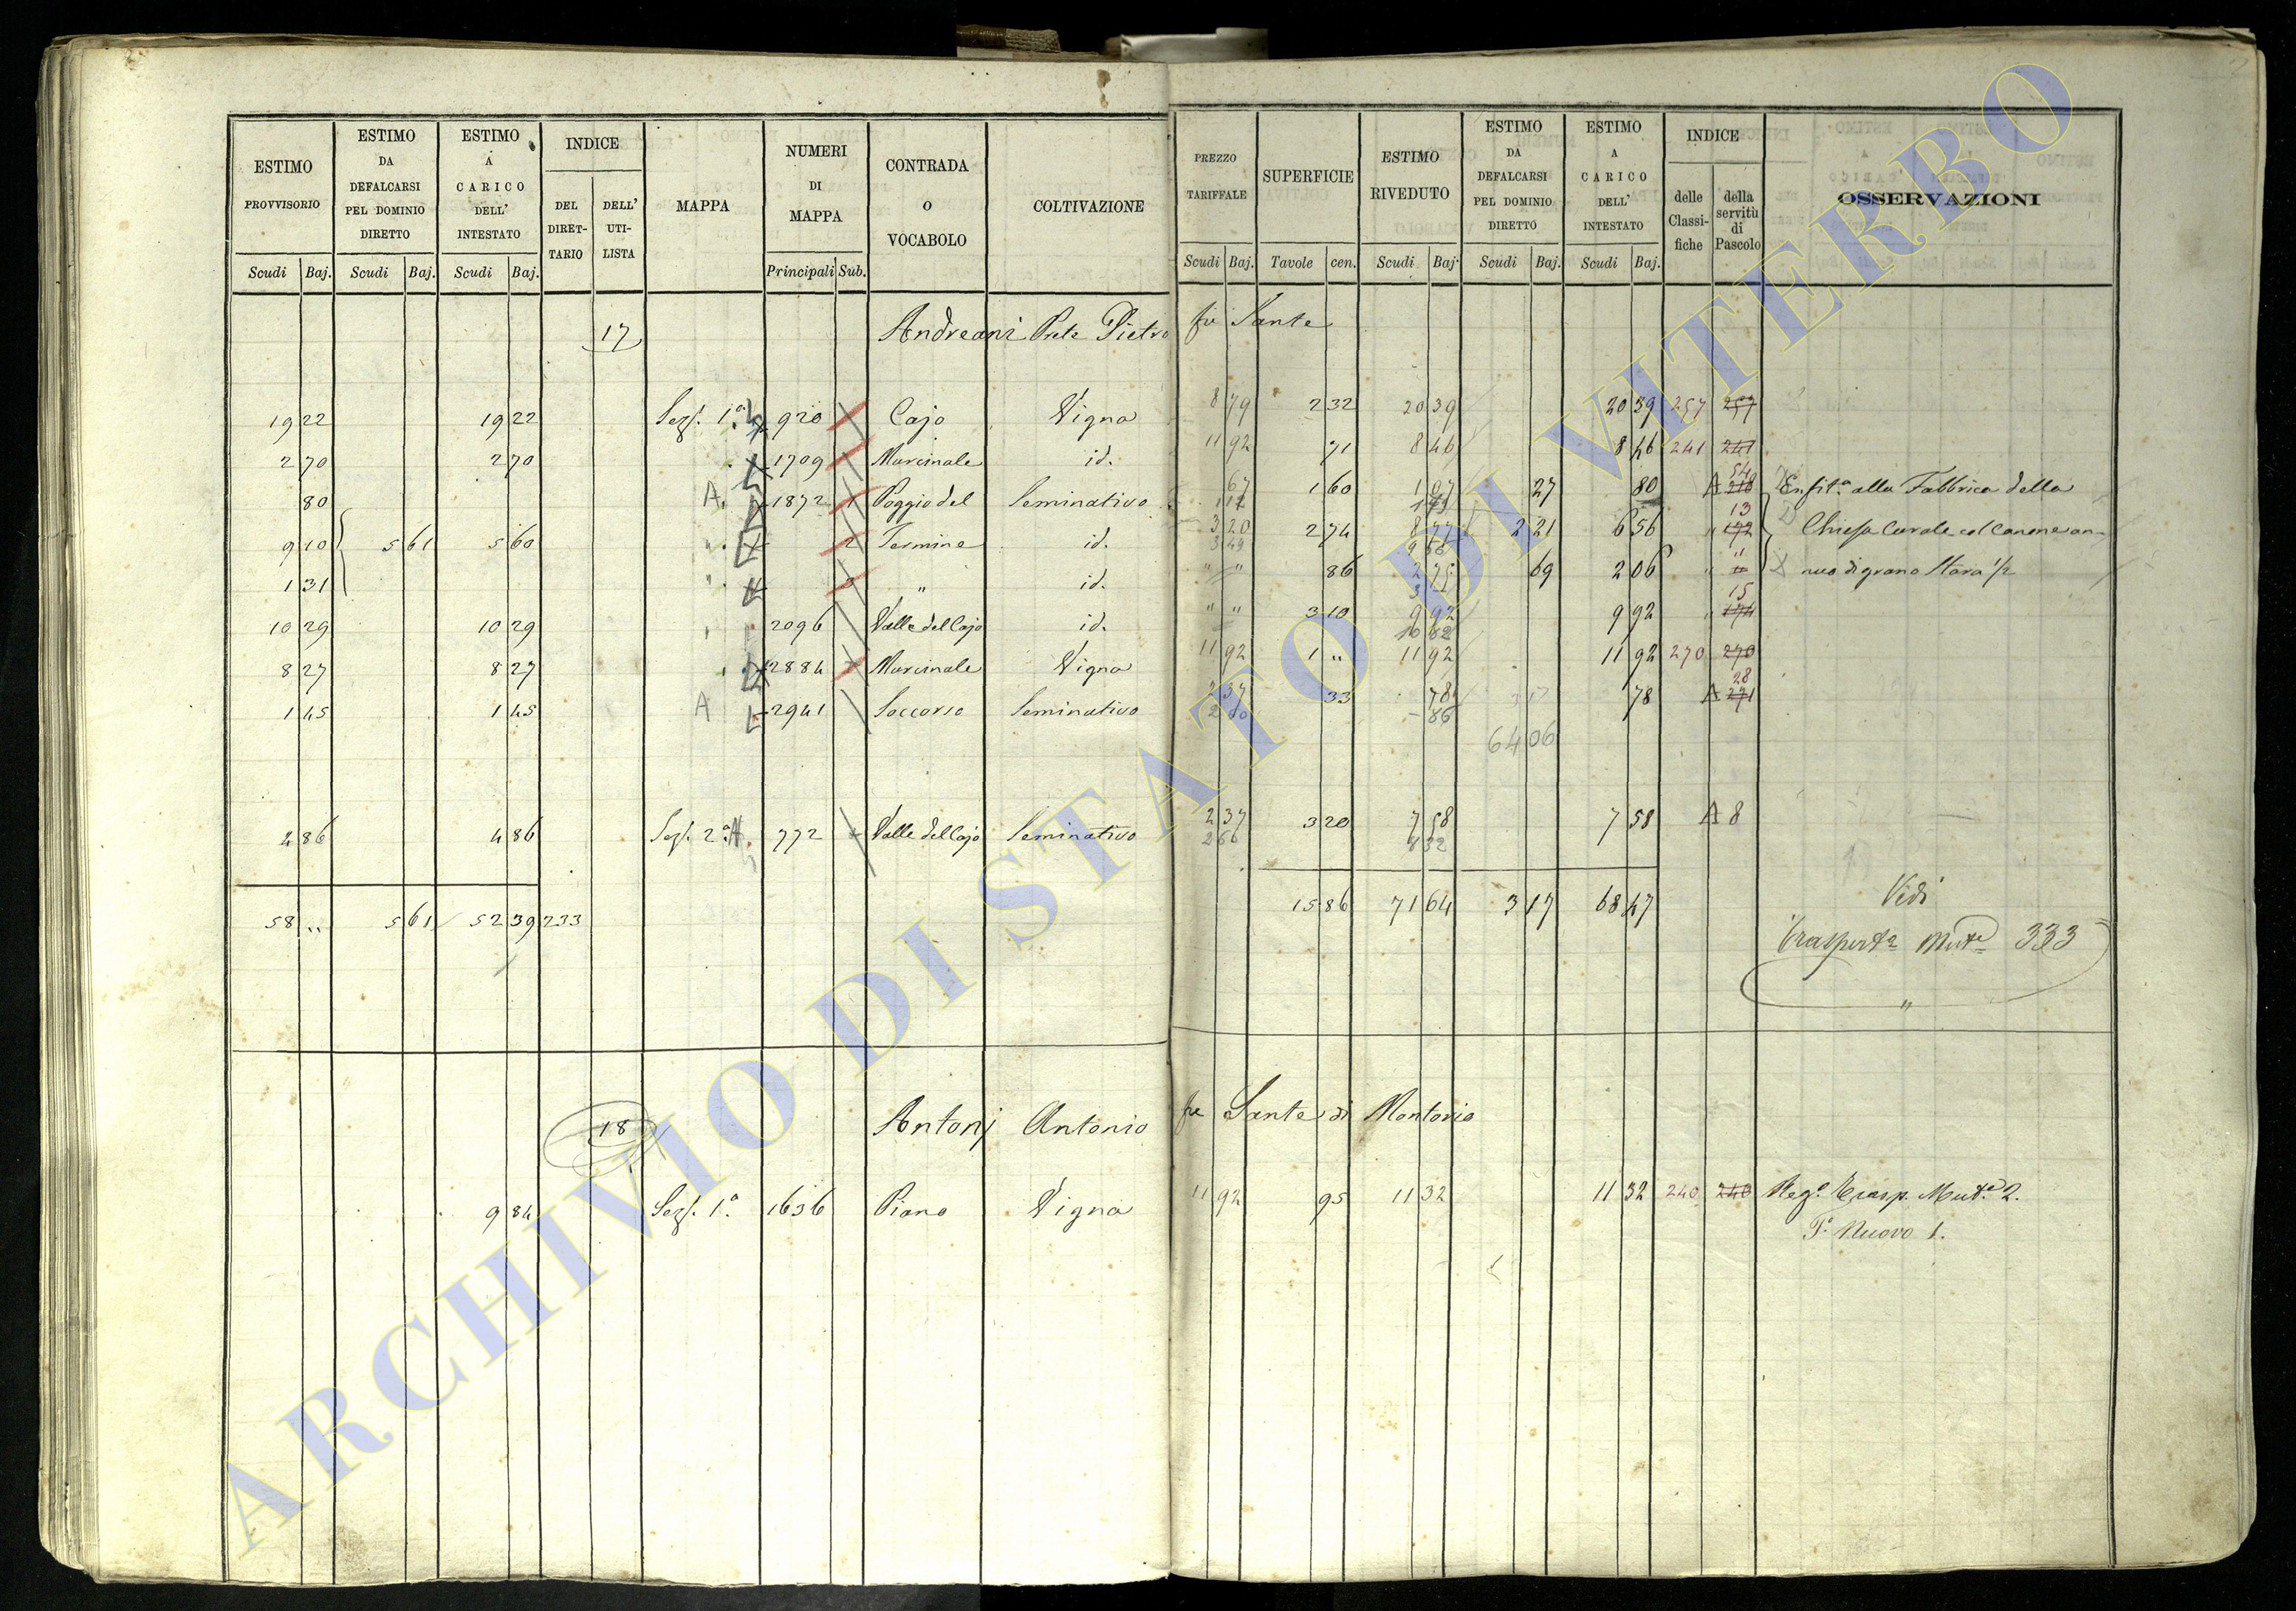 ESTIMO PROVVISORIO Scudi Baj.
ESTIMO DA DEFALCARSI PEL DOMINIO DIRETTO Scudi Baj.
ESTIMO A CARICO DELL' INTESTATO Scudi Baj.
INDICE DEL DIRETTARIO DELL' UTILISTA
MAPPA
NUMERI DI MAPPA Principali Sub.
CONTRADA O VOCABOLO
COLTIVAZIONE
PREZZO TARIFFALE Scudi Baj.
SUPERFICIE Tavole cen.
ESTIMO RIVEDUTO Scudi Baj.
ESTIMO DA DEFALCARSI PEL DOMINIO DIRETTO Scudi Baj.
ESTIMO A CARICO DELL' INTESTATO Scudi Baj.
INDICE delle Classifiche della servitù di Pascolo
OSSERVAZIONI
17 Andreani Prete Pietro fu Sante
19 22 19 22 Sez. 1ª 920 Cajo Vigna 8 79 2 32 20 39 20 39 257 257
2 70 2 70 1709 Marcinale id. 11 92 71 8 46 8 46 241 241
80 A. 1872 1 Poggio del Seminativo 67 1 60 1 07 27 80 A 54 Enfit.ª alla Fabbrica della
9 10 5 61 5 60 2 Termine id. 3 20 2 74 8 77 2 21 6 56 " 13 172 Chiesa Curale col canone an-
1 31 3 " id. " " 86 2 75 69 2 06 " " nuo di grano Stara 1/2
10 29 10 29 2096 Valle del Cajo id. " " 3 10 9 92 9 92 " 15 174
8 27 8 27 2884 Marcinale Vigna 11 92 1 " 11 92 11 92 270 270
1 45 1 45 A 2941 Soccorso Seminativo 2 37 33 78 78 A 28 271
86
64 06
4 86 4 86 Sez. 2ª A 772 Valle del Cajo Seminativo 2 37 3 20 7 58 7 58 A 8
2 60 8 32
58 " 5 61 52 39 233 15 86 71 64 3 17 68 47 Vidi
Trasporto Mut.e 333
"
18 Antonj Antonio fu Sante di Montorio
9 84 Sez. 1ª 1636 Piano Vigna 11 92 95 11 32 11 32 240 240 Reg.º Trasp. Mut.e 2.
T.º Nuovo 1.
ARCHIVIO DI STATO DI VITERBO